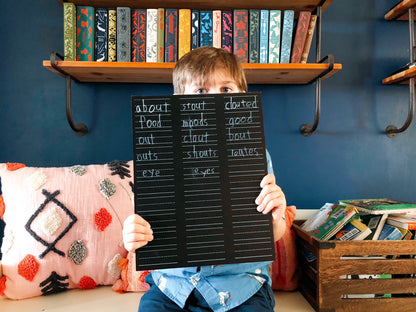 about stout clouted
food moods good
out clout bout
outs shouts routes
eye eyes